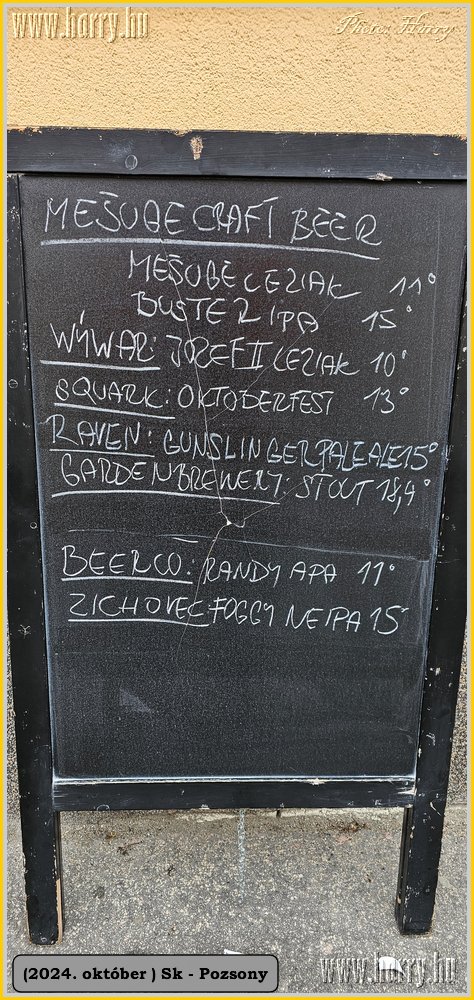 www.harry.hu
Photo: Harry
MEŠUGE CRAFT BEER
MEŠUGE LEZIAK 11°
BUSTER IPA 15°
WÝWAR: JOZEF II LEZIAK 10°
SQUARK: OKTOBERFEST 13°
RAVEN: GUNSLINGER PALE ALE 15°
GARDEN BREWERY: STOUT 18,4°
BEERCO: RANDY APA 11°
ZICHOVEC: FOGGY NEIPA 15°
(2024. október ) Sk - Pozsony
www.harry.hu